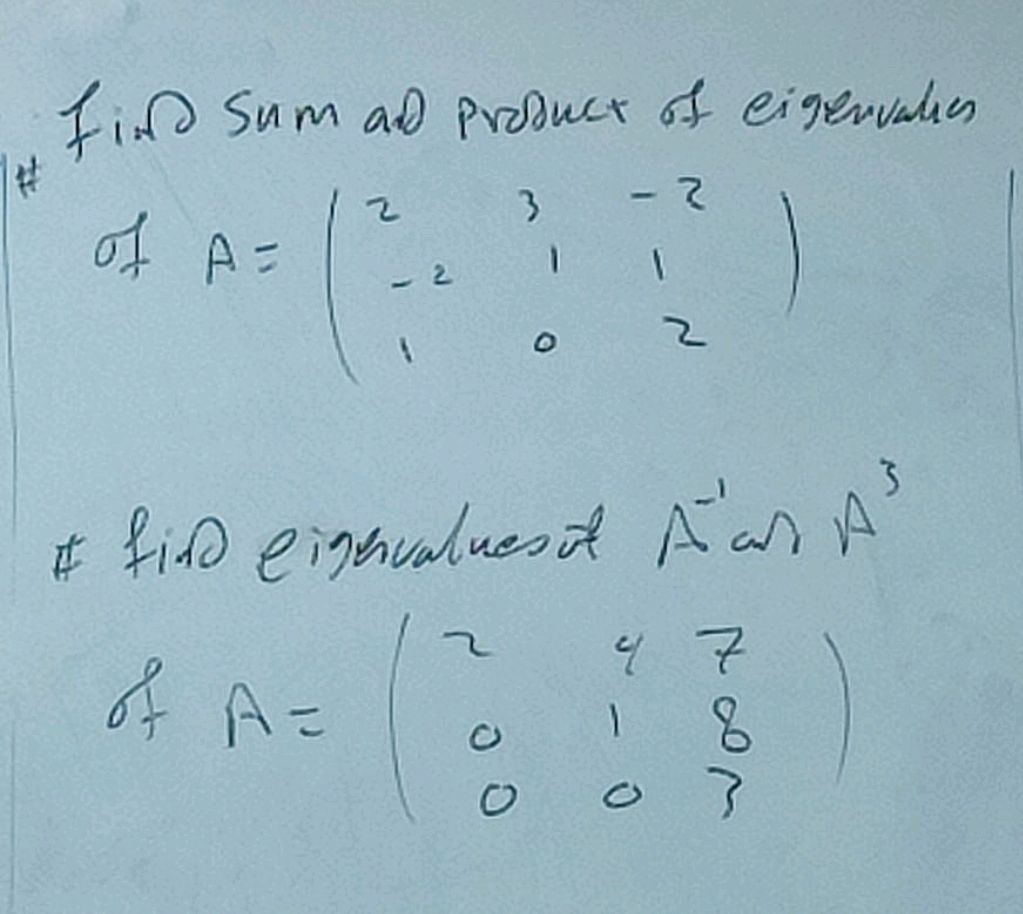 # find sum ad product of eigenvalues
of A = ( 2 3 -2
-2 1 1
1 0 2 )
# find eigenvalues of A⁻¹ an A³
of A = ( 2 4 7
0 1 8
0 0 3 )